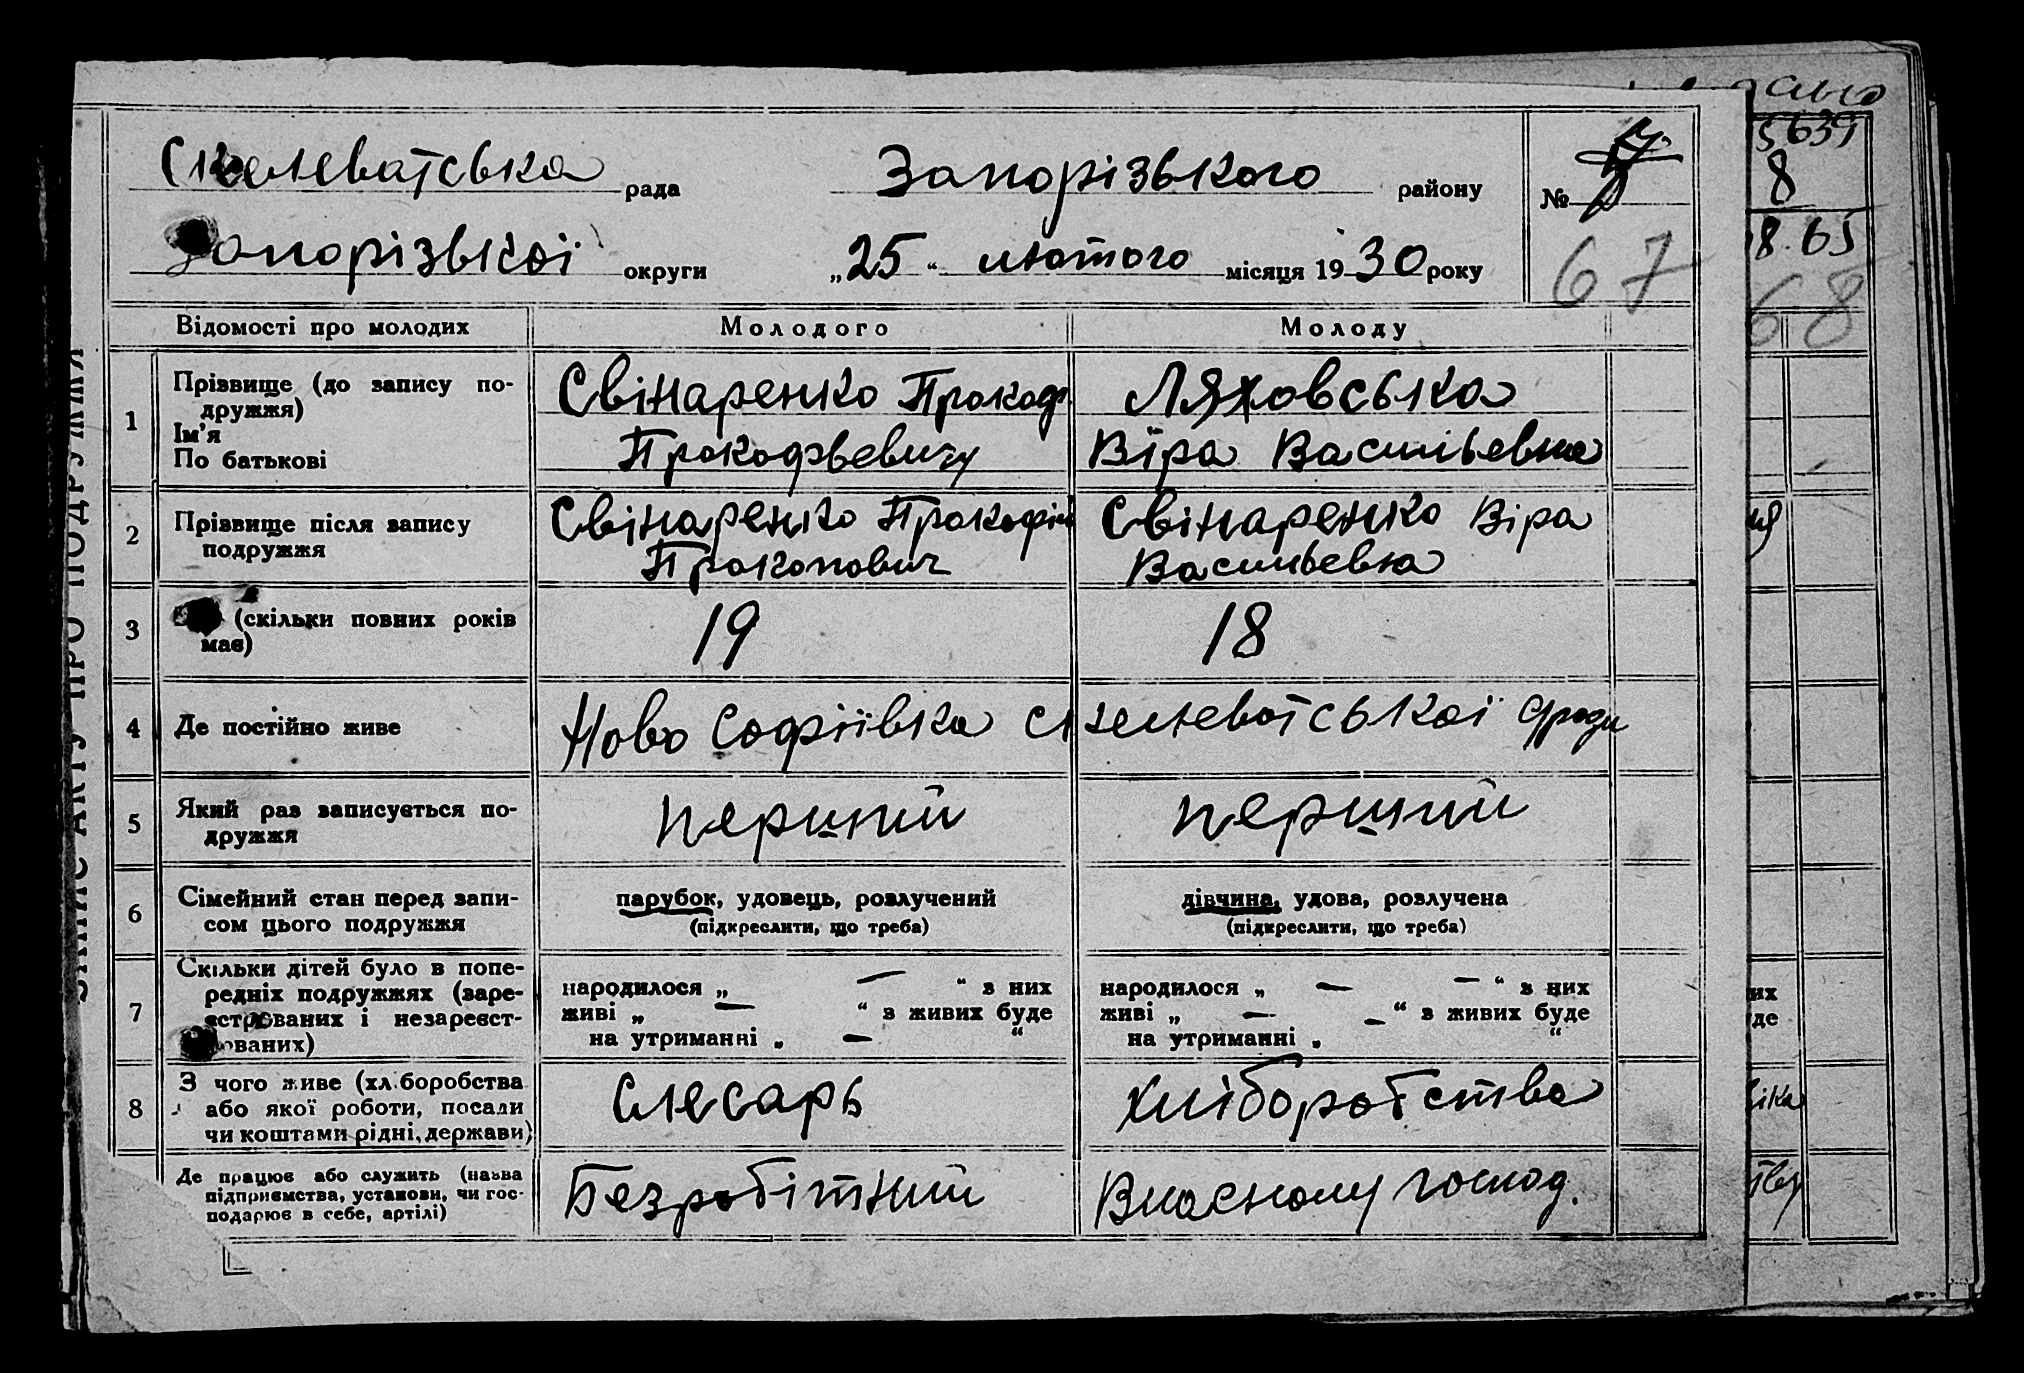 Скелеватська рада Запорізького району №
Запорізької округи „25“ лютого місяця 1930 року
67
Відомості про молодих Молодого Молоду
1 Прізвище (до запису по-
дружжя)
Ім'я
По батькові
Свінаренко Прокоф.
Прокофьевичу
Ляховська
Віра Васильевна
2 Прізвище після запису
подружжя
Свінаренко Прокофій
Прокопович
Свінаренко Віра
Васильевна
3 (скільки повних років
має)
19 18
4 Де постійно живе Ново Софіївка Скелеватської с/ради
5 Який раз записується по-
дружжя
перший перший
6 Сімейний стан перед запи-
сом цього подружжя
парубок, удовець, розлучений
(підкреслити, що треба)
дівчина, удова, розлучена
(підкреслити, що треба)
7 Скільки дітей було в попе-
редніх подружжях (заре-
єстрованих і незареєст-
рованих)
народилося „ — “ з них
живі „ — “ з живих буде
на утриманні „ — “
народилося „ — — “ з них
живі „ — — “ з живих буде
на утриманні „ “
8 З чого живе (хліборобства
або якої роботи, посади
чи коштами рідні, держави)
Слесарь Хліборобства
Де працює або служить (назва
підприємства, установи, чи гос-
подарює в себе, артілі)
Безробітний Власному господ.
ЗАПИС АКТУ ПРО ПОДРУЖЖЯ
5639
8
18.65
68
них
уде